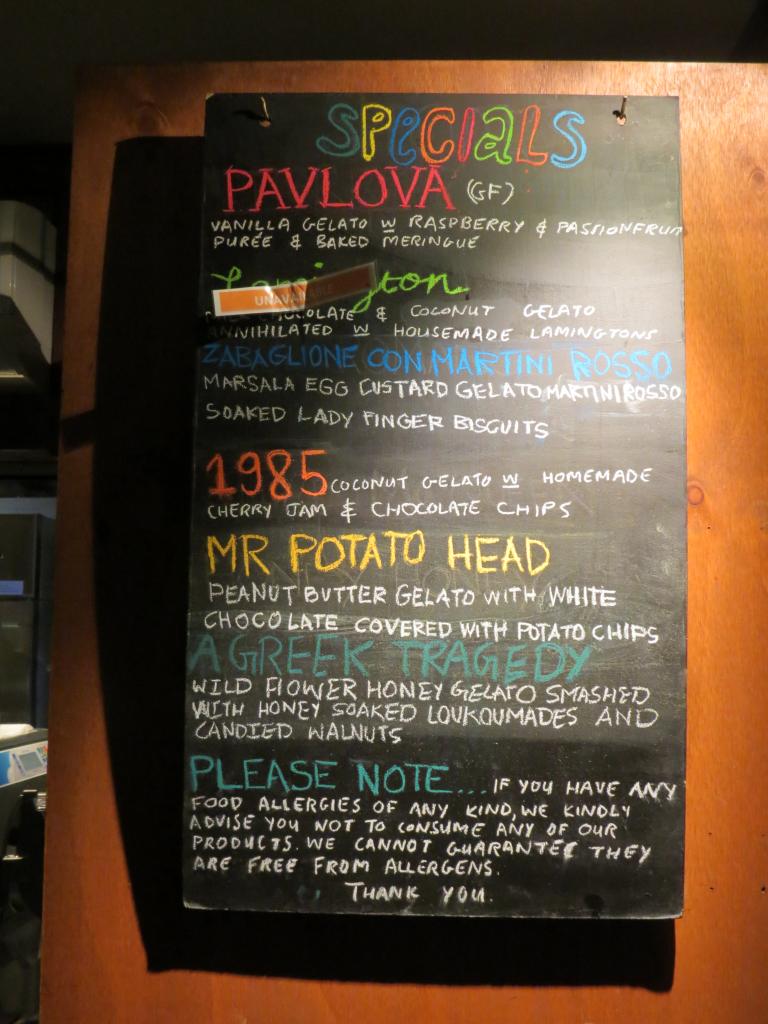 SPECIALS
PAVLOVA (GF)
VANILLA GELATO W RASPBERRY & PASSIONFRUIT
PUREE & BAKED MERINGUE
Lamington
UNAVAILABLE
CHOCOLATE & COCONUT GELATO
ANNIHILATED W HOUSEMADE LAMINGTONS
ZABAGLIONE CON MARTINI ROSSO
MARSALA EGG CUSTARD GELATO MARTINI ROSSO
SOAKED LADY FINGER BISCUITS
1985 COCONUT GELATO W HOMEMADE
CHERRY JAM & CHOCOLATE CHIPS
MR POTATO HEAD
PEANUT BUTTER GELATO WITH WHITE
CHOCOLATE COVERED WITH POTATO CHIPS
A GREEK TRAGEDY
WILD FLOWER HONEY GELATO SMASHED
WITH HONEY SOAKED LOUKOUMADES AND
CANDIED WALNUTS
PLEASE NOTE... IF YOU HAVE ANY
FOOD ALLERGIES OF ANY KIND, WE KINDLY
ADVISE YOU NOT TO CONSUME ANY OF OUR
PRODUCTS. WE CANNOT GUARANTEE THEY
ARE FREE FROM ALLERGENS.
THANK YOU.